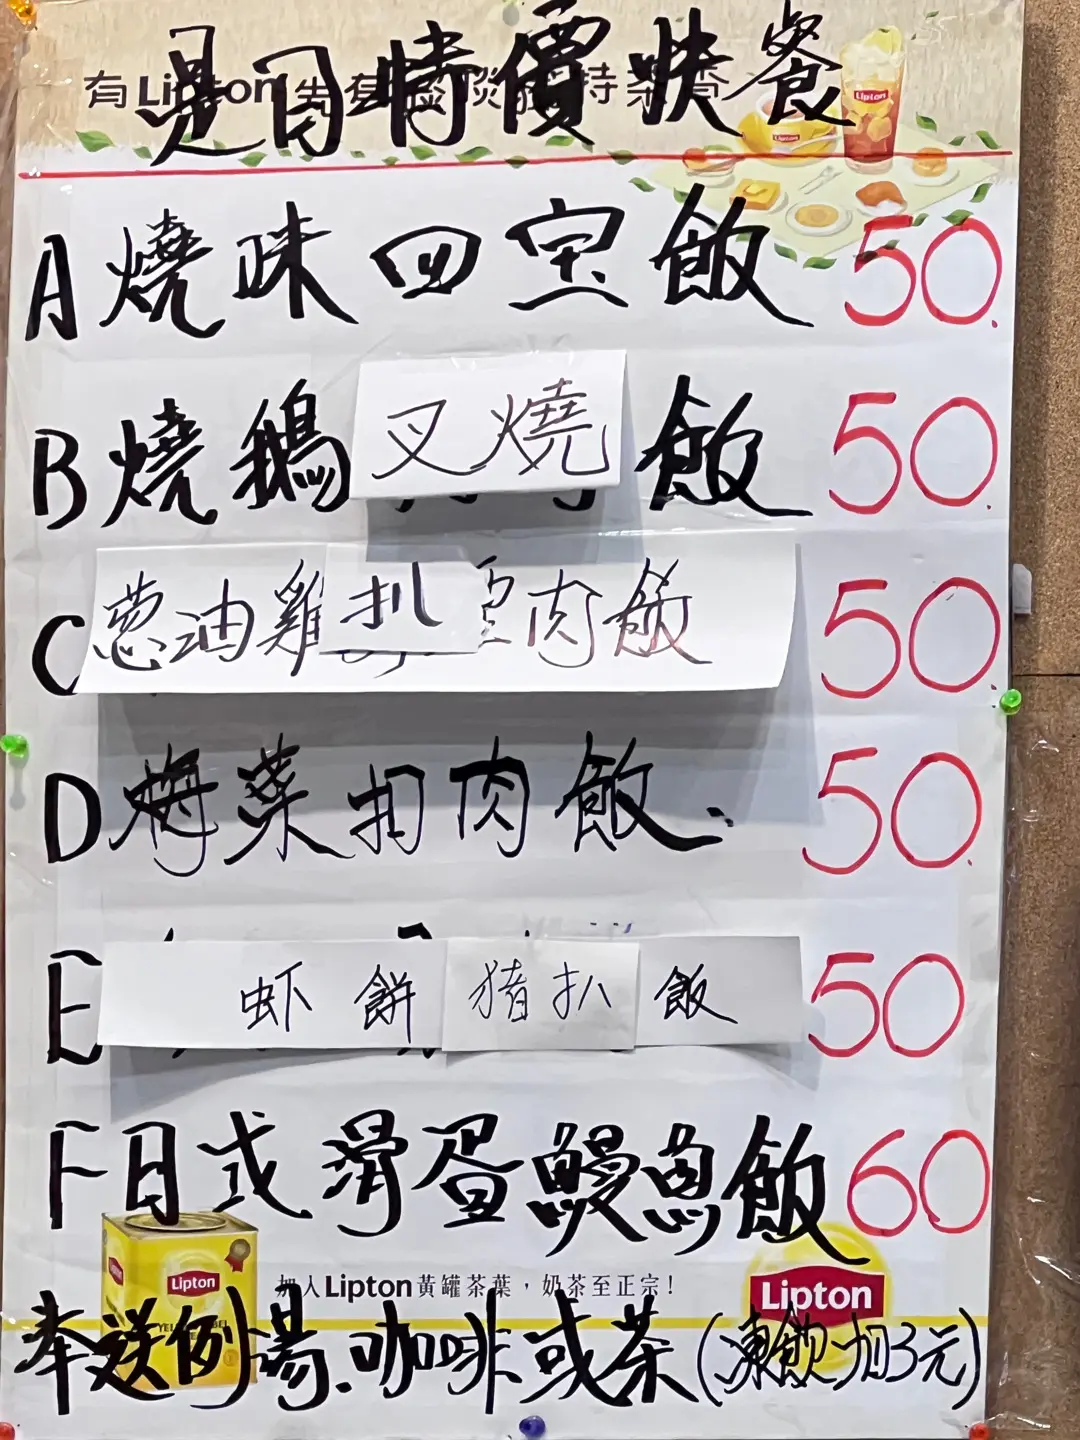 是日特價快餐
有Lipton先有
持茶香
Lipton
Lipton
A燒味四宝飯 50
B燒鵝叉燒飯 50
C葱油雞扒肉飯 50
D梅菜扣肉飯 50
E虾餅猪扒飯 50
F日式滑蛋鰻魚飯 60
Lipton
加入Lipton黃罐茶葉，奶茶至正宗！
Lipton
奉送例湯.咖啡或茶(凍飲加3元)